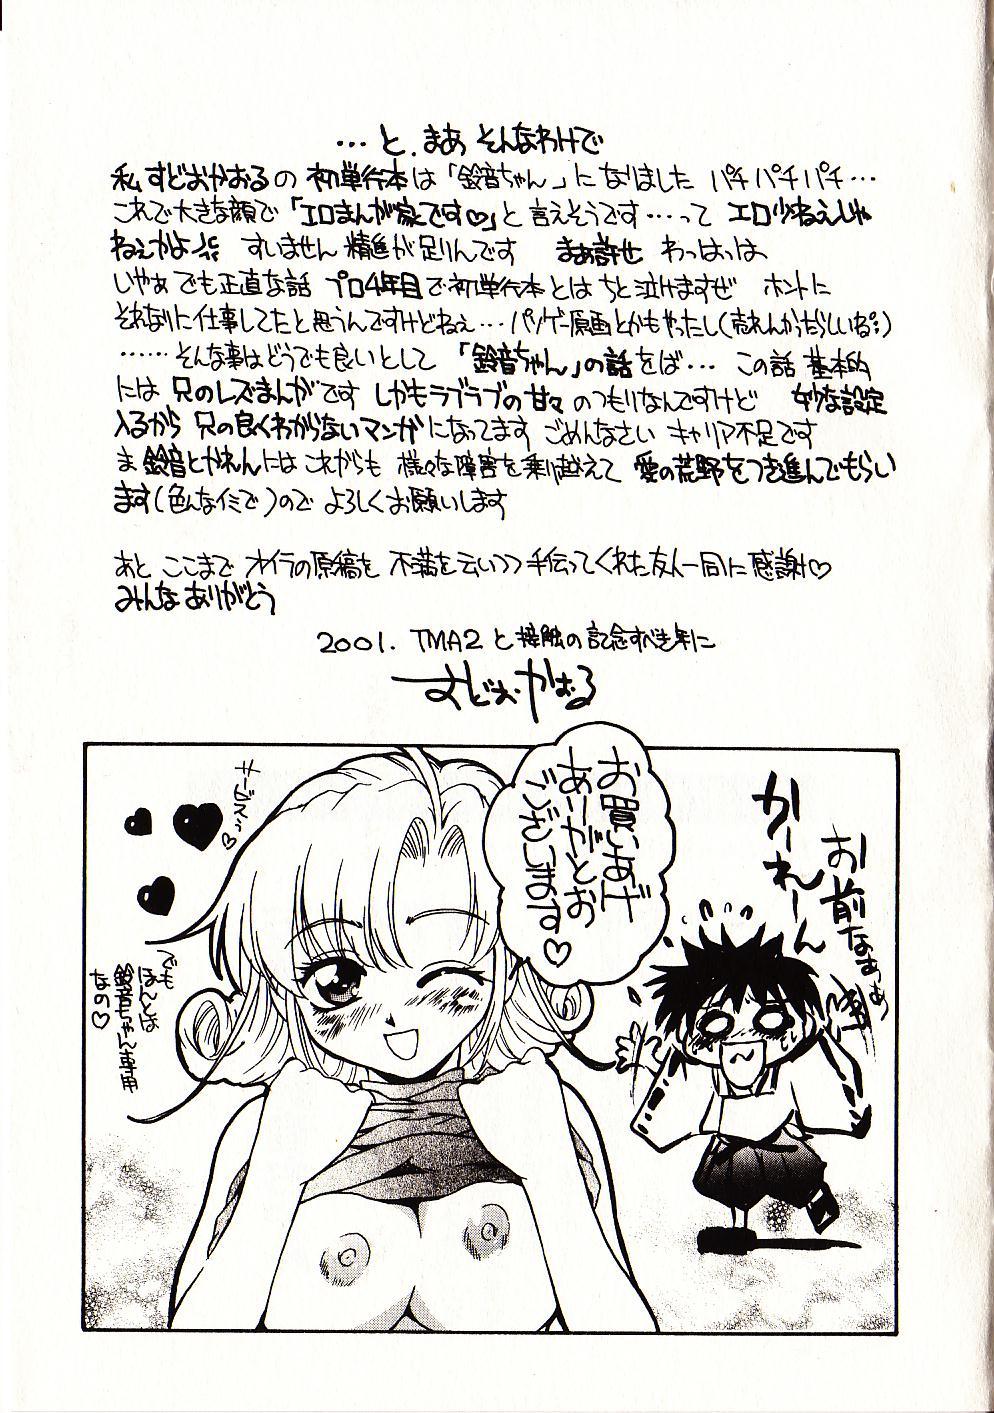 …と、まあ そんなわけで
私 すどおかおるの 初単行本は「鈴音ちゃん」になりました パチパチパチ…
これで大きな顔で「エロまんが家です♡」と言えそうです…って エロ少ねえじゃ
ねぇかよ すいません 精進が足りんです まぁ許せ わっはっは
いやぁ でも正直な話 プロ4年目で初単行本とは ちと泣けますぜ ホントに
それなりに仕事してたと思うんですけどねぇ…パソゲー原画とかもやったし(売れんかったらしいね)
……そんな事はどうでも良いとして 「鈴音ちゃん」の話をば… この話 基本的
には 兄のレズまんがです しかもラブラブの甘々 のつもりなんですけど 妙な設定
入るから 兄の良くわからないマンガになってます ごめんなさい キャリア不足です
ま 鈴音とかれんには これからも 様々な障害を乗り越えて 愛の荒野をつき進んでもらい
ます(色んなイミで)ので よろしくお願いします
あと ここまで オイラの原稿を 不満を云いつつ手伝ってくれた友人一同に 感謝♡
みんなありがとう
2001. TMA2 と接触の記念すべき年に
すどお・かおる
お買いあげ
ありがとお
ございます♡
サービスっ♡
でも
ほんとは
鈴音ちゃん専用
なの♡
かーれーん
お前なぁぁ